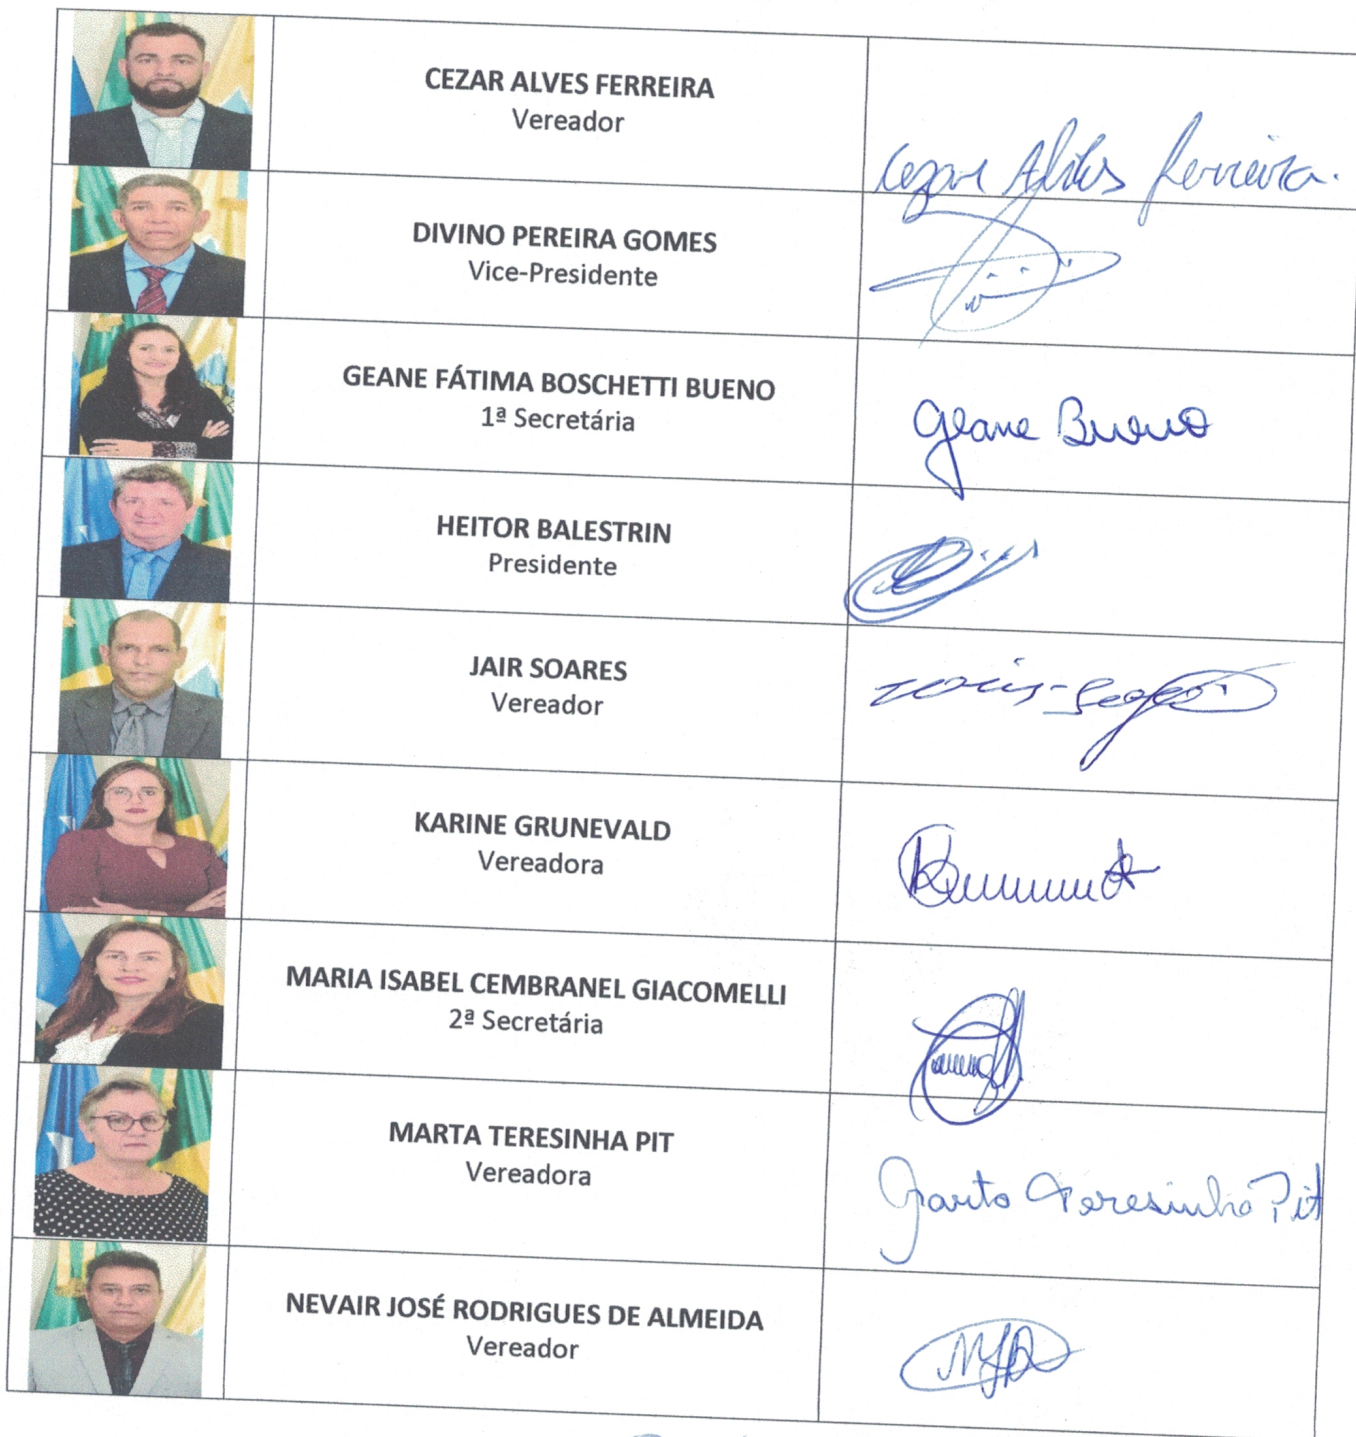 CEZAR ALVES FERREIRA
Vereador
Cezar Alves Ferreira.
DIVINO PEREIRA GOMES
Vice-Presidente
GEANE FÁTIMA BOSCHETTI BUENO
1ª Secretária
Geane Bueno
HEITOR BALESTRIN
Presidente
JAIR SOARES
Vereador
KARINE GRUNEVALD
Vereadora
MARIA ISABEL CEMBRANEL GIACOMELLI
2ª Secretária
MARTA TERESINHA PIT
Vereadora
Marta Teresinha Pit
NEVAIR JOSÉ RODRIGUES DE ALMEIDA
Vereador